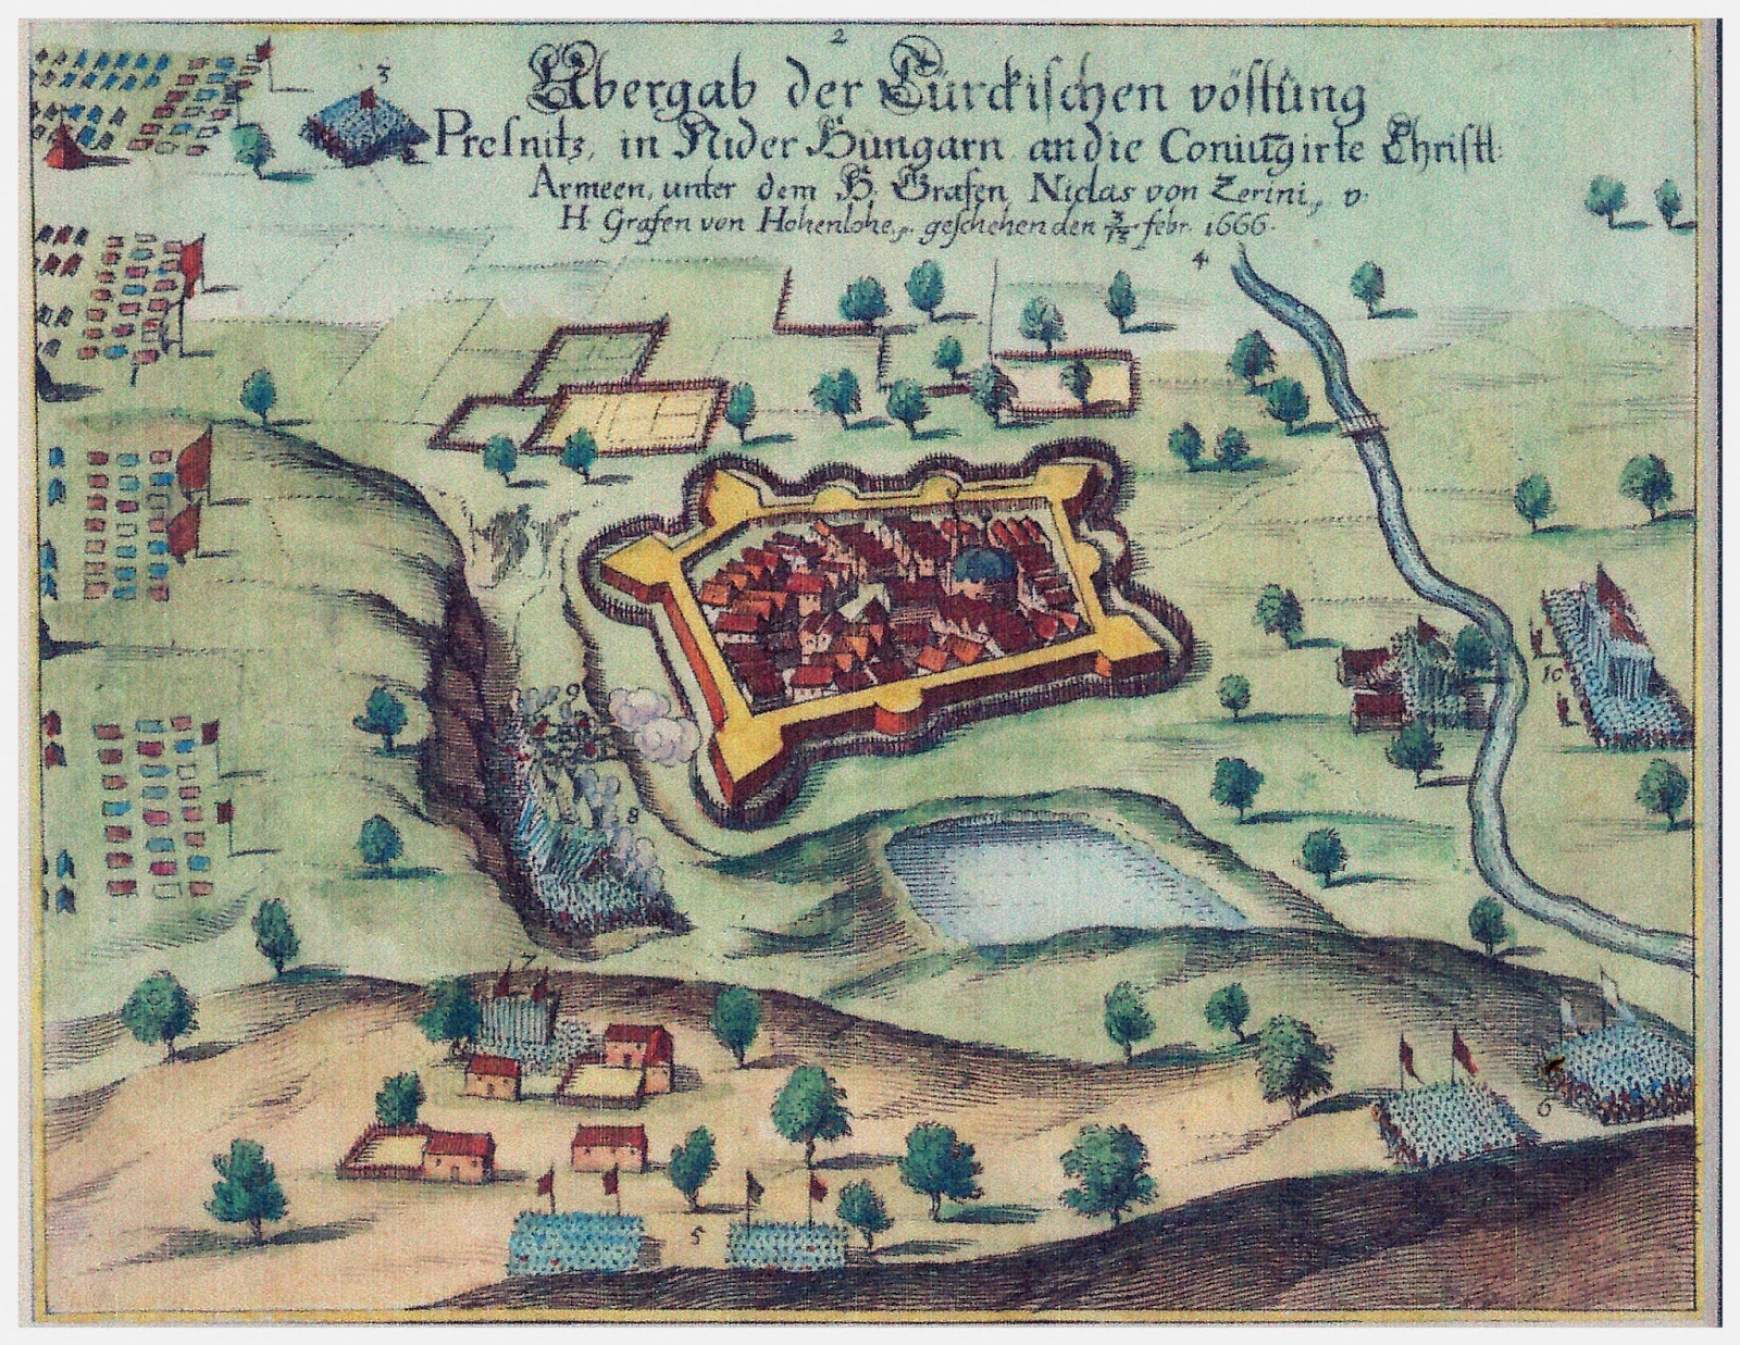 2
Übergab der Türckischen vöstung
3
Presnitz, in Nider Hungarn an die Coniūgirte Christl:
Armeen, unter dem H. Grafen Niclas von Zerini, v.
H. Grafen von Hohenlohe, geschehen den 3/13 febr. 1666.
4
10
9
8
7
6
5